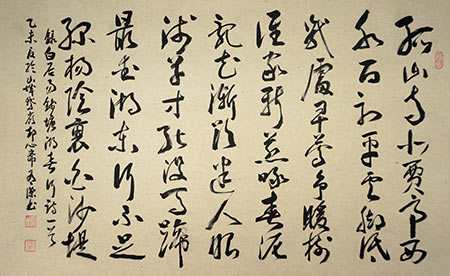 孤山寺北賈亭西
水面初平雲腳低
幾處早鶯爭暖樹
誰家新燕啄春泥
亂花漸欲迷人眼
淺草才能沒馬蹄
最愛湖東行不足
綠楊陰裏白沙堤
錄白居易錢塘湖春行詩一首
乙未夏於